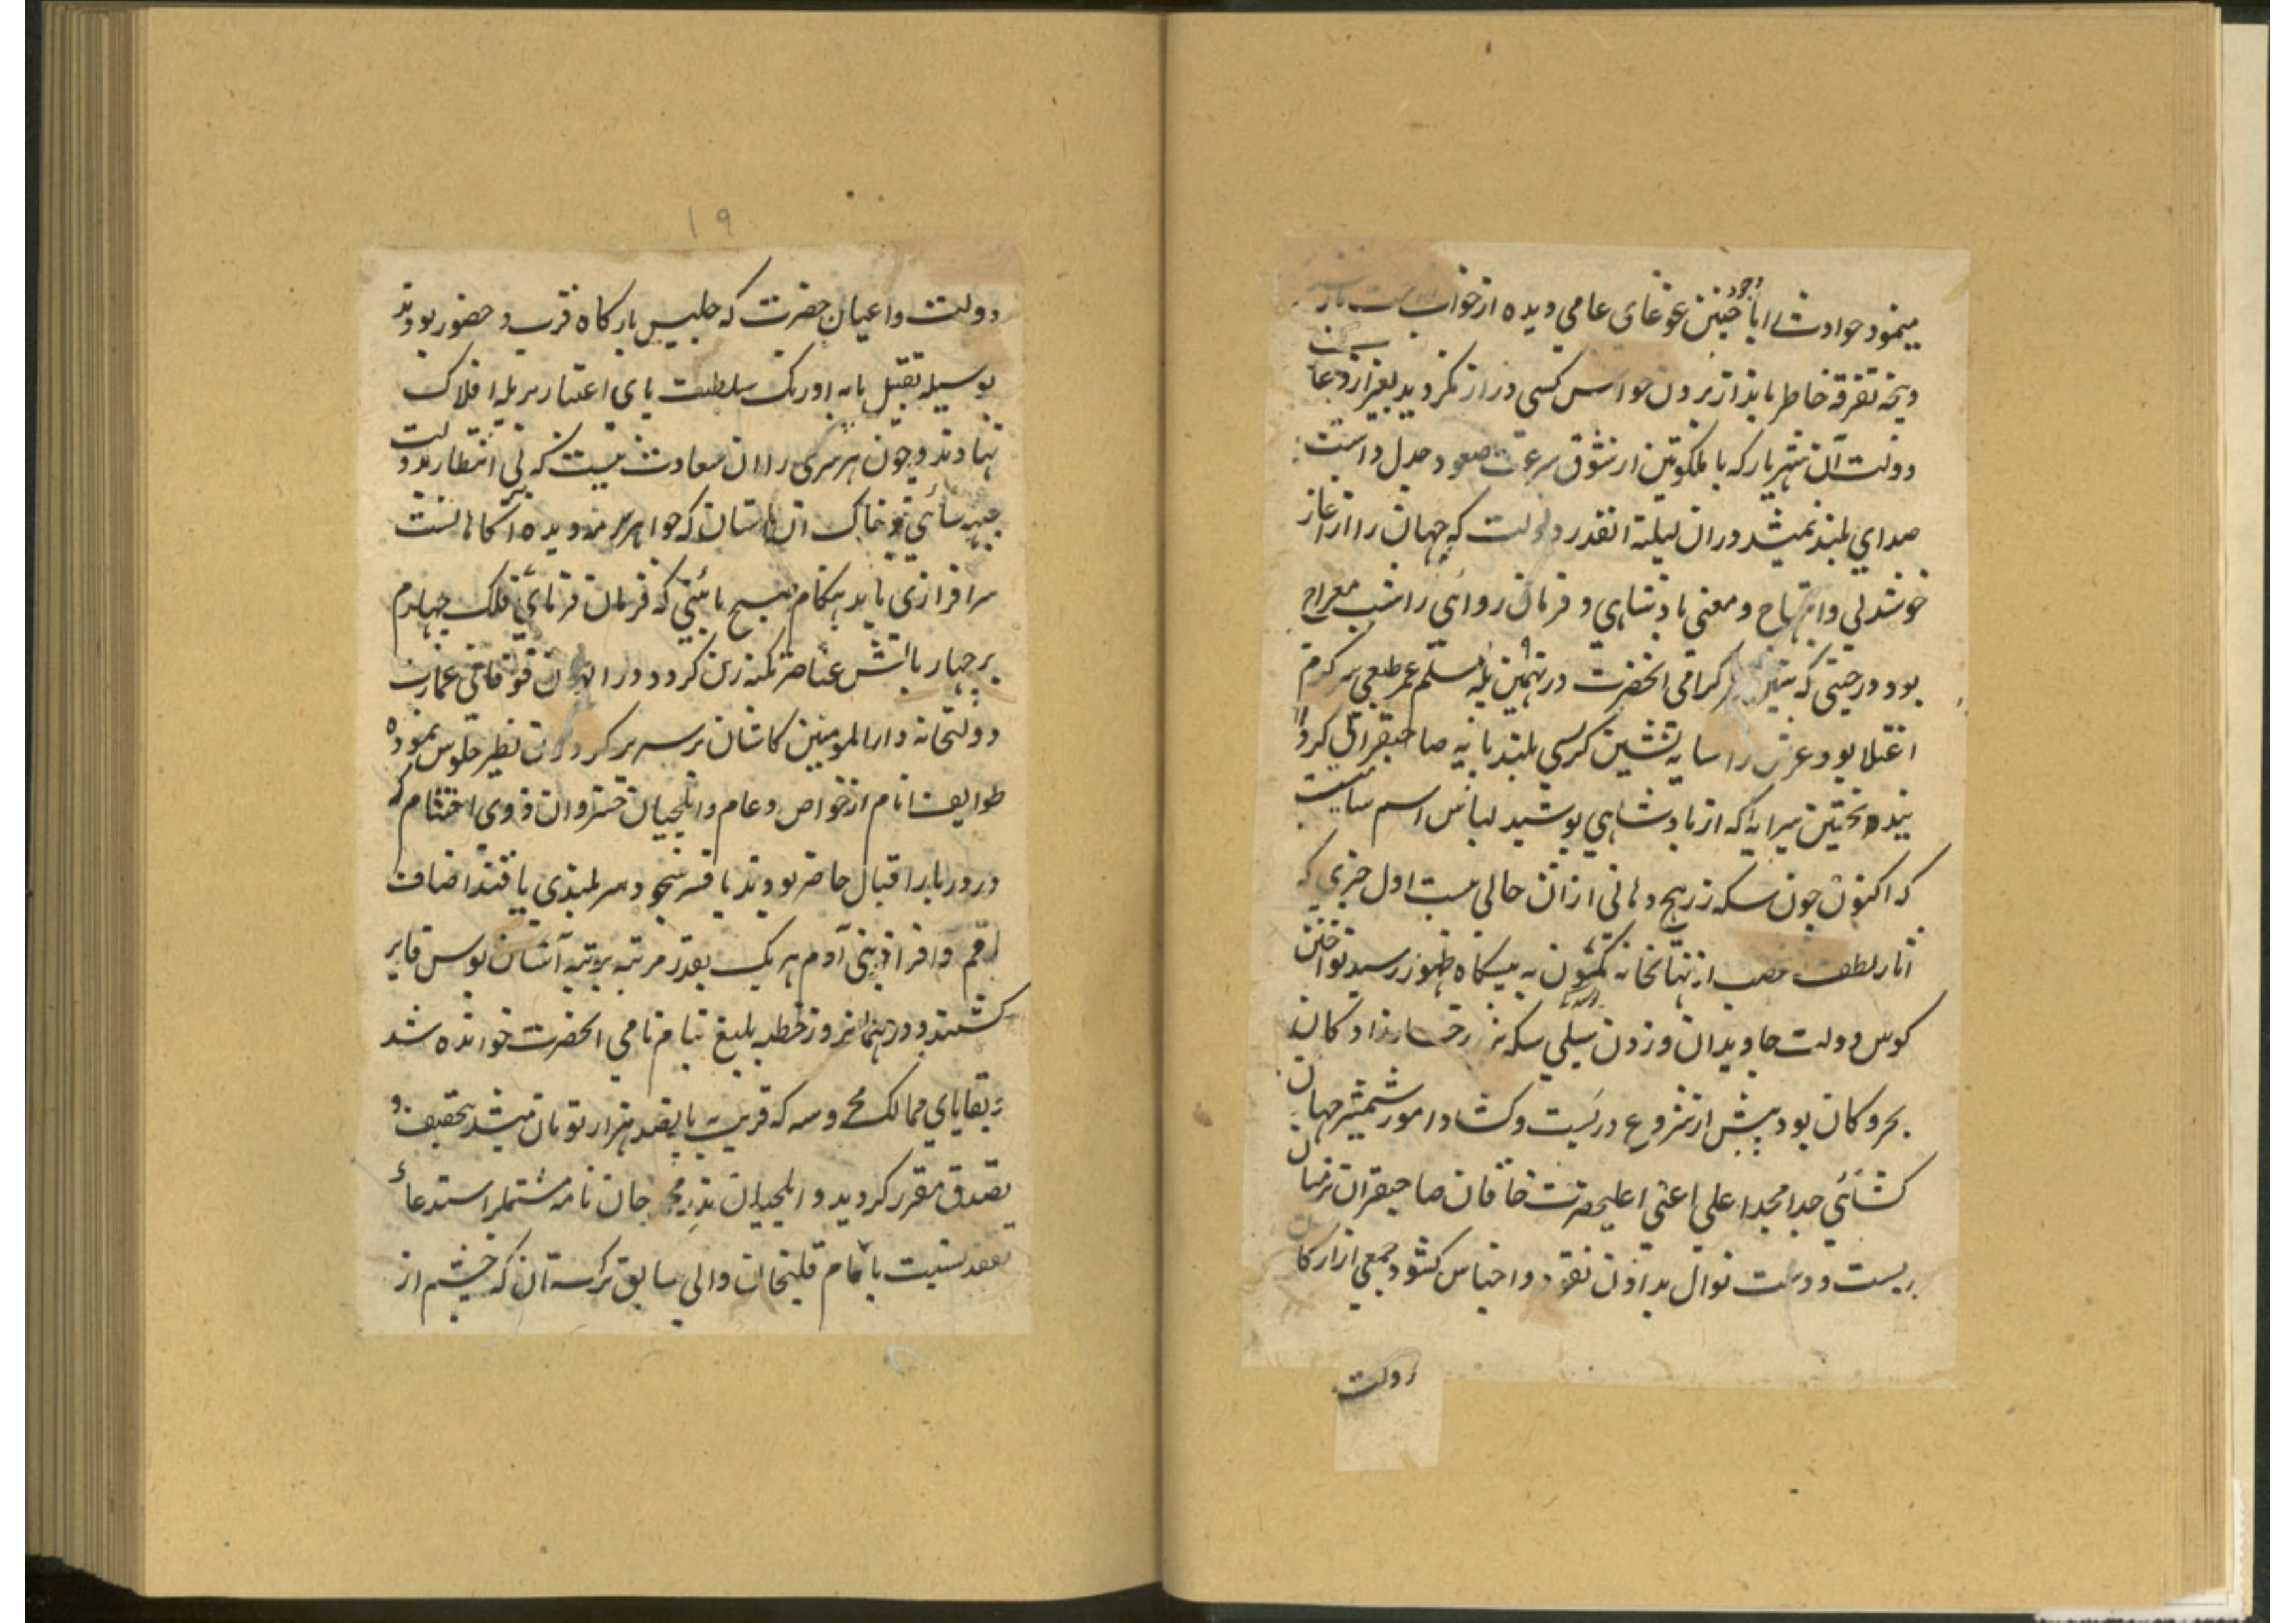 مینمود حوادث را با وجود چنین غوغای عامی دیده از خواب
و پنجه تفرقه خاطر باندازبردن حواس کسی دراز نکردید بغیر از دعای
دولت آن شهریار که با ملکوتین از شوق سرعت صعود جدل داشت
صدای بلند نمیشد در ان لیلة القدر دولت که جهان را از آغاز
خوشدلی و ابتهاج و معنی پادشاهی و فرمان روائی را شب معراج
بود در حینی که کرامی انحضرت در نهمین پله سلم عمر طبعی سرکرم
اعتلا بود عرش را سایه نشین کرسی بلند پایه صاحبقرانی کردا
نیده نخستین پیرایه که از پادشاهی پوشید لباس اسم سامیست
که اکنون چون سکه زر هیچ دهانی از ان خالی نیست اول چیزی که
اثار لطف از نهانخانه کمون به پیشکاه ظهور رسید نواختن
کوس دولت جاویدان و زدن سیلی سکه بر رخسار زاد کان
بحر و کان بود پیش از شروع در بست و کشاد امور شمشیر جهان
کشائی جد امجد اعلی اعنی اعلیحضرت خاقان صاحبقران بر میان
بست و دست نوال بدادن نقود و اجناس کشود جمعی از ارکان
دولت
۱۹
دولت و اعیان حضرت که جلیس بارکاه قرب و حضور بودند
بوسیله تقبیل پایه اورنک سلطنت پای اعتبار بر پله افلاک
نهادند و چون هر سری را ان سعادت نیست که بی انتظار بدولت
جبهه سائی خاک ان استان که جواهر سرمه دیده آکاهانست
سرافرازی یابد هنکام صبح یاسینی که فرمان فرمای فلک چهارم
بر چهار بالش عناصر تکیه زن کردد در ایوان فوقانی عمارت
دولتخانه دارالمومنین کاشان بر سریر کردون نظیر جلوس نموده
طوایف انام از خواص و عام و ایلچیان خسروان ذوی احتشام که
در دربار اقبال حاضر بودند بافسر سجود سر بلندی یافتند اصناف
امم و افراد بنی آدم هر یک بقدر مرتبه برتبه آستان بوس فایز
کشتند و در همان روز خطبه بلیغ بنام نامی انحضرت خوانده شد
و بقایای ممالک محروسه که قریب به پانصد هزار تومان میشد بتخفیف و
تصدق مقرر کردید و ایلچیان نذر محمد خان نامه مشتمل بر استدعای
تفقد نسبت بامام قلیخان والی سابق ترکستان که چشم از